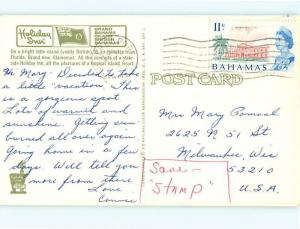 Holiday Inn
GRAND BAHAMA ISLAND
On a bright little island (vividly British)
Florida. Brand new. Glamorous. All the comforts of a state-
side Holiday Inn, all the pleasures of a tropical island resort.
Hi Mary - Decided to take
a little "vacation." This
is a gorgeous spot
Lots of warmth and
sunshine. Getting sun-
burned all over again
Going home in a few
days. Will tell you
more from there
Love
Connie
11c
BAHAMAS
POST CARD
Mrs Mary Pomsal
2625 N 51 St
Milwaukee, Wis
53210
U.S.A.
Save -
"STAMP"